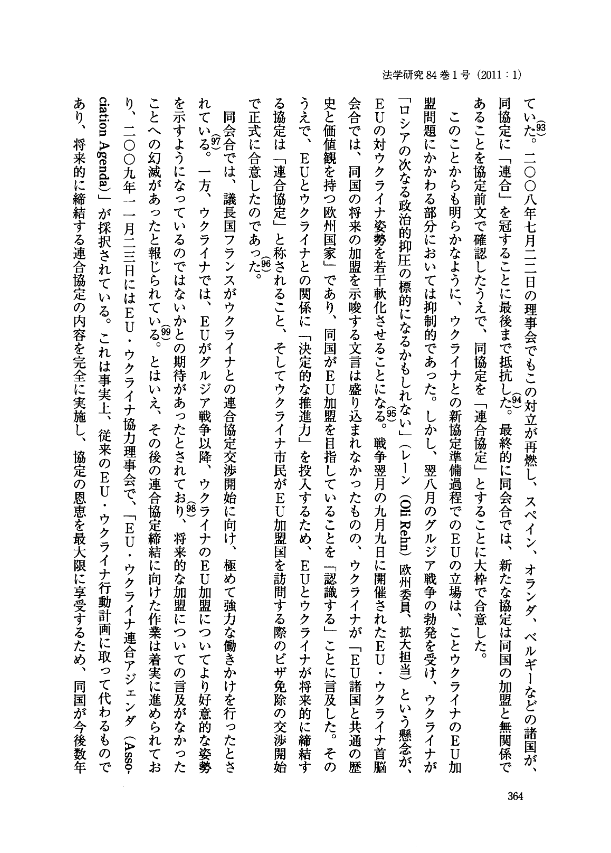 法学研究 84 巻 1 号（2011：1）
ていた。(93)二〇〇八年七月二二日の理事会でもこの対立が再燃し、スペイン、オランダ、ベルギーなどの諸国が、
同協定に「連合」を冠することに最後まで抵抗した。(94)最終的に同会合では、新たな協定は同国の加盟と無関係で
あることを協定前文で確認したうえで、同協定を「連合協定」とすることに大枠で合意した。
このことからも明らかなように、ウクライナとの新協定準備過程でのEUの立場は、ことウクライナのEU加
盟問題にかかわる部分においては抑制的であった。しかし、翌八月のグルジア戦争の勃発を受け、ウクライナが
「ロシアの次なる政治的抑圧の標的になるかもしれない」（レーン（Oli Rehn）欧州委員、拡大担当）という懸念が、
EUの対ウクライナ姿勢を若干軟化させることになる。(95)戦争翌月の九月九日に開催されたEU・ウクライナ首脳
会合では、同国の将来の加盟を示唆する文言は盛り込まれなかったものの、ウクライナが「EU諸国と共通の歴
史と価値観を持つ欧州国家」であり、同国がEU加盟を目指していることを「認識する」ことに言及した。その
うえで、EUとウクライナとの関係に「決定的な推進力」を投入するため、EUとウクライナが将来的に締結す
る協定は「連合協定」と称されること、そしてウクライナ市民がEU加盟国を訪問する際のビザ免除の交渉開始
で正式に合意したのであった。(96)
同会合では、議長国フランスがウクライナとの連合協定交渉開始に向け、極めて強力な働きかけを行ったとさ
れている。(97)一方、ウクライナでは、EUがグルジア戦争以降、ウクライナのEU加盟についてより好意的な姿勢
を示すようになっているのではないかとの期待があったとされており、(98)将来的な加盟についての言及がなかった
ことへの幻滅があったと報じられている。(99)とはいえ、その後の連合協定締結に向けた作業は着実に進められてお
り、二〇〇九年一一月二三日にはEU・ウクライナ協力理事会で、「EU・ウクライナ連合アジェンダ（Asso-
ciation Agenda）」が採択されている。これは事実上、従来のEU・ウクライナ行動計画に取って代わるもので
あり、将来的に締結する連合協定の内容を完全に実施し、協定の恩恵を最大限に享受するため、同国が今後数年
364